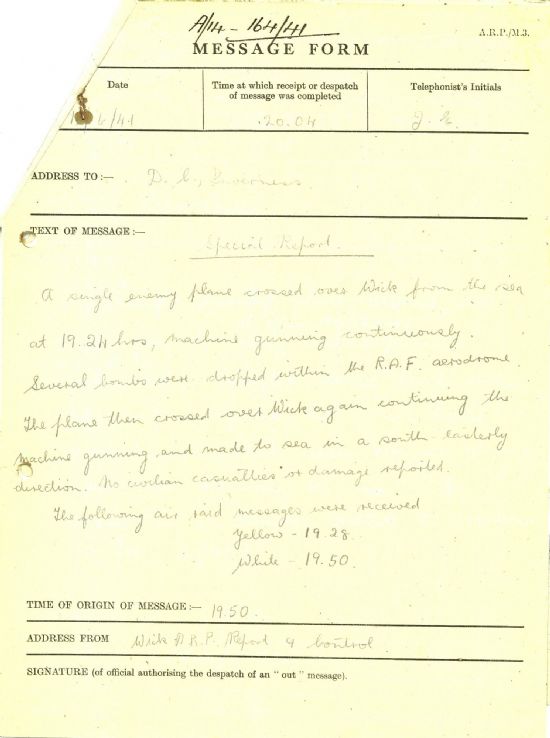 A/14 - 164/41
A.R.P./M.3.
MESSAGE FORM
Date
Time at which receipt or despatch
of message was completed
Telephonist's Initials
/4/41
20.04
J. E.
ADDRESS TO :—
D. C., Inverness
TEXT OF MESSAGE :—
Special Report.
A single enemy plane crossed over Wick from the sea
at 19.24 hrs, machine gunning continuously.
Several bombs were dropped within the R.A.F. aerodrome.
The plane then crossed over Wick again continuing the
machine gunning and made to sea in a south-easterly
direction. No civilian casualties or damage reported.
The following air raid messages were received
Yellow - 19.28
White - 19.50.
TIME OF ORIGIN OF MESSAGE :— 19.50.
ADDRESS FROM Wick A.R.P. Report & Control.
SIGNATURE (of official authorising the despatch of an "out" message).